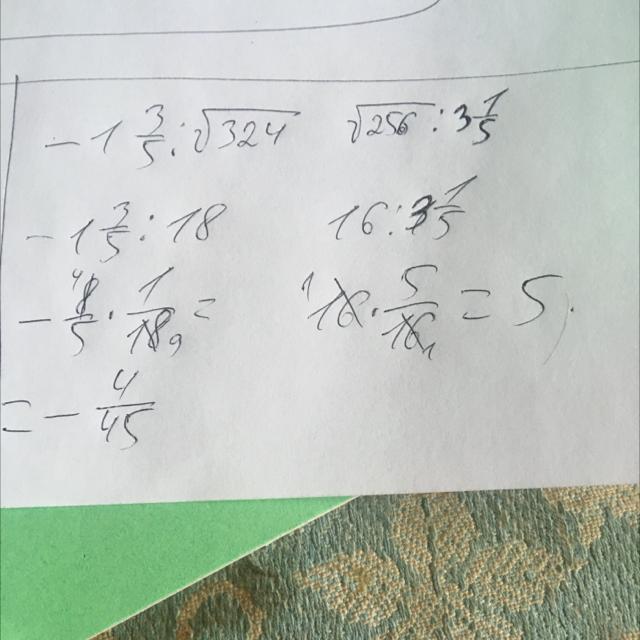 -1 3/5 : √324   √256 : 3 1/5
-1 3/5 : 18   16 : 3 1/5
-8/5 · 1/18 =   16 · 5/16 = 5.
= -4/45